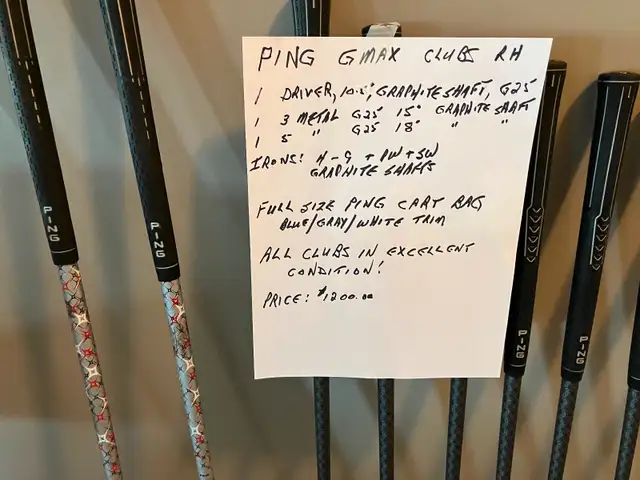 PING GMAX CLUBS RH
1 DRIVER, 10.5°, GRAPHITE SHAFT, G25
1 3 METAL G25 15° GRAPHITE SHAFT
1 5 " G25 18° " "
IRONS: 4-9 + PW + SW
GRAPHITE SHAFTS
FULL SIZE PING CART BAG
BLUE/GRAY/WHITE TRIM
ALL CLUBS IN EXCELLENT
CONDITION!
PRICE: $1200.00
PING
PING
PING
PING
PING